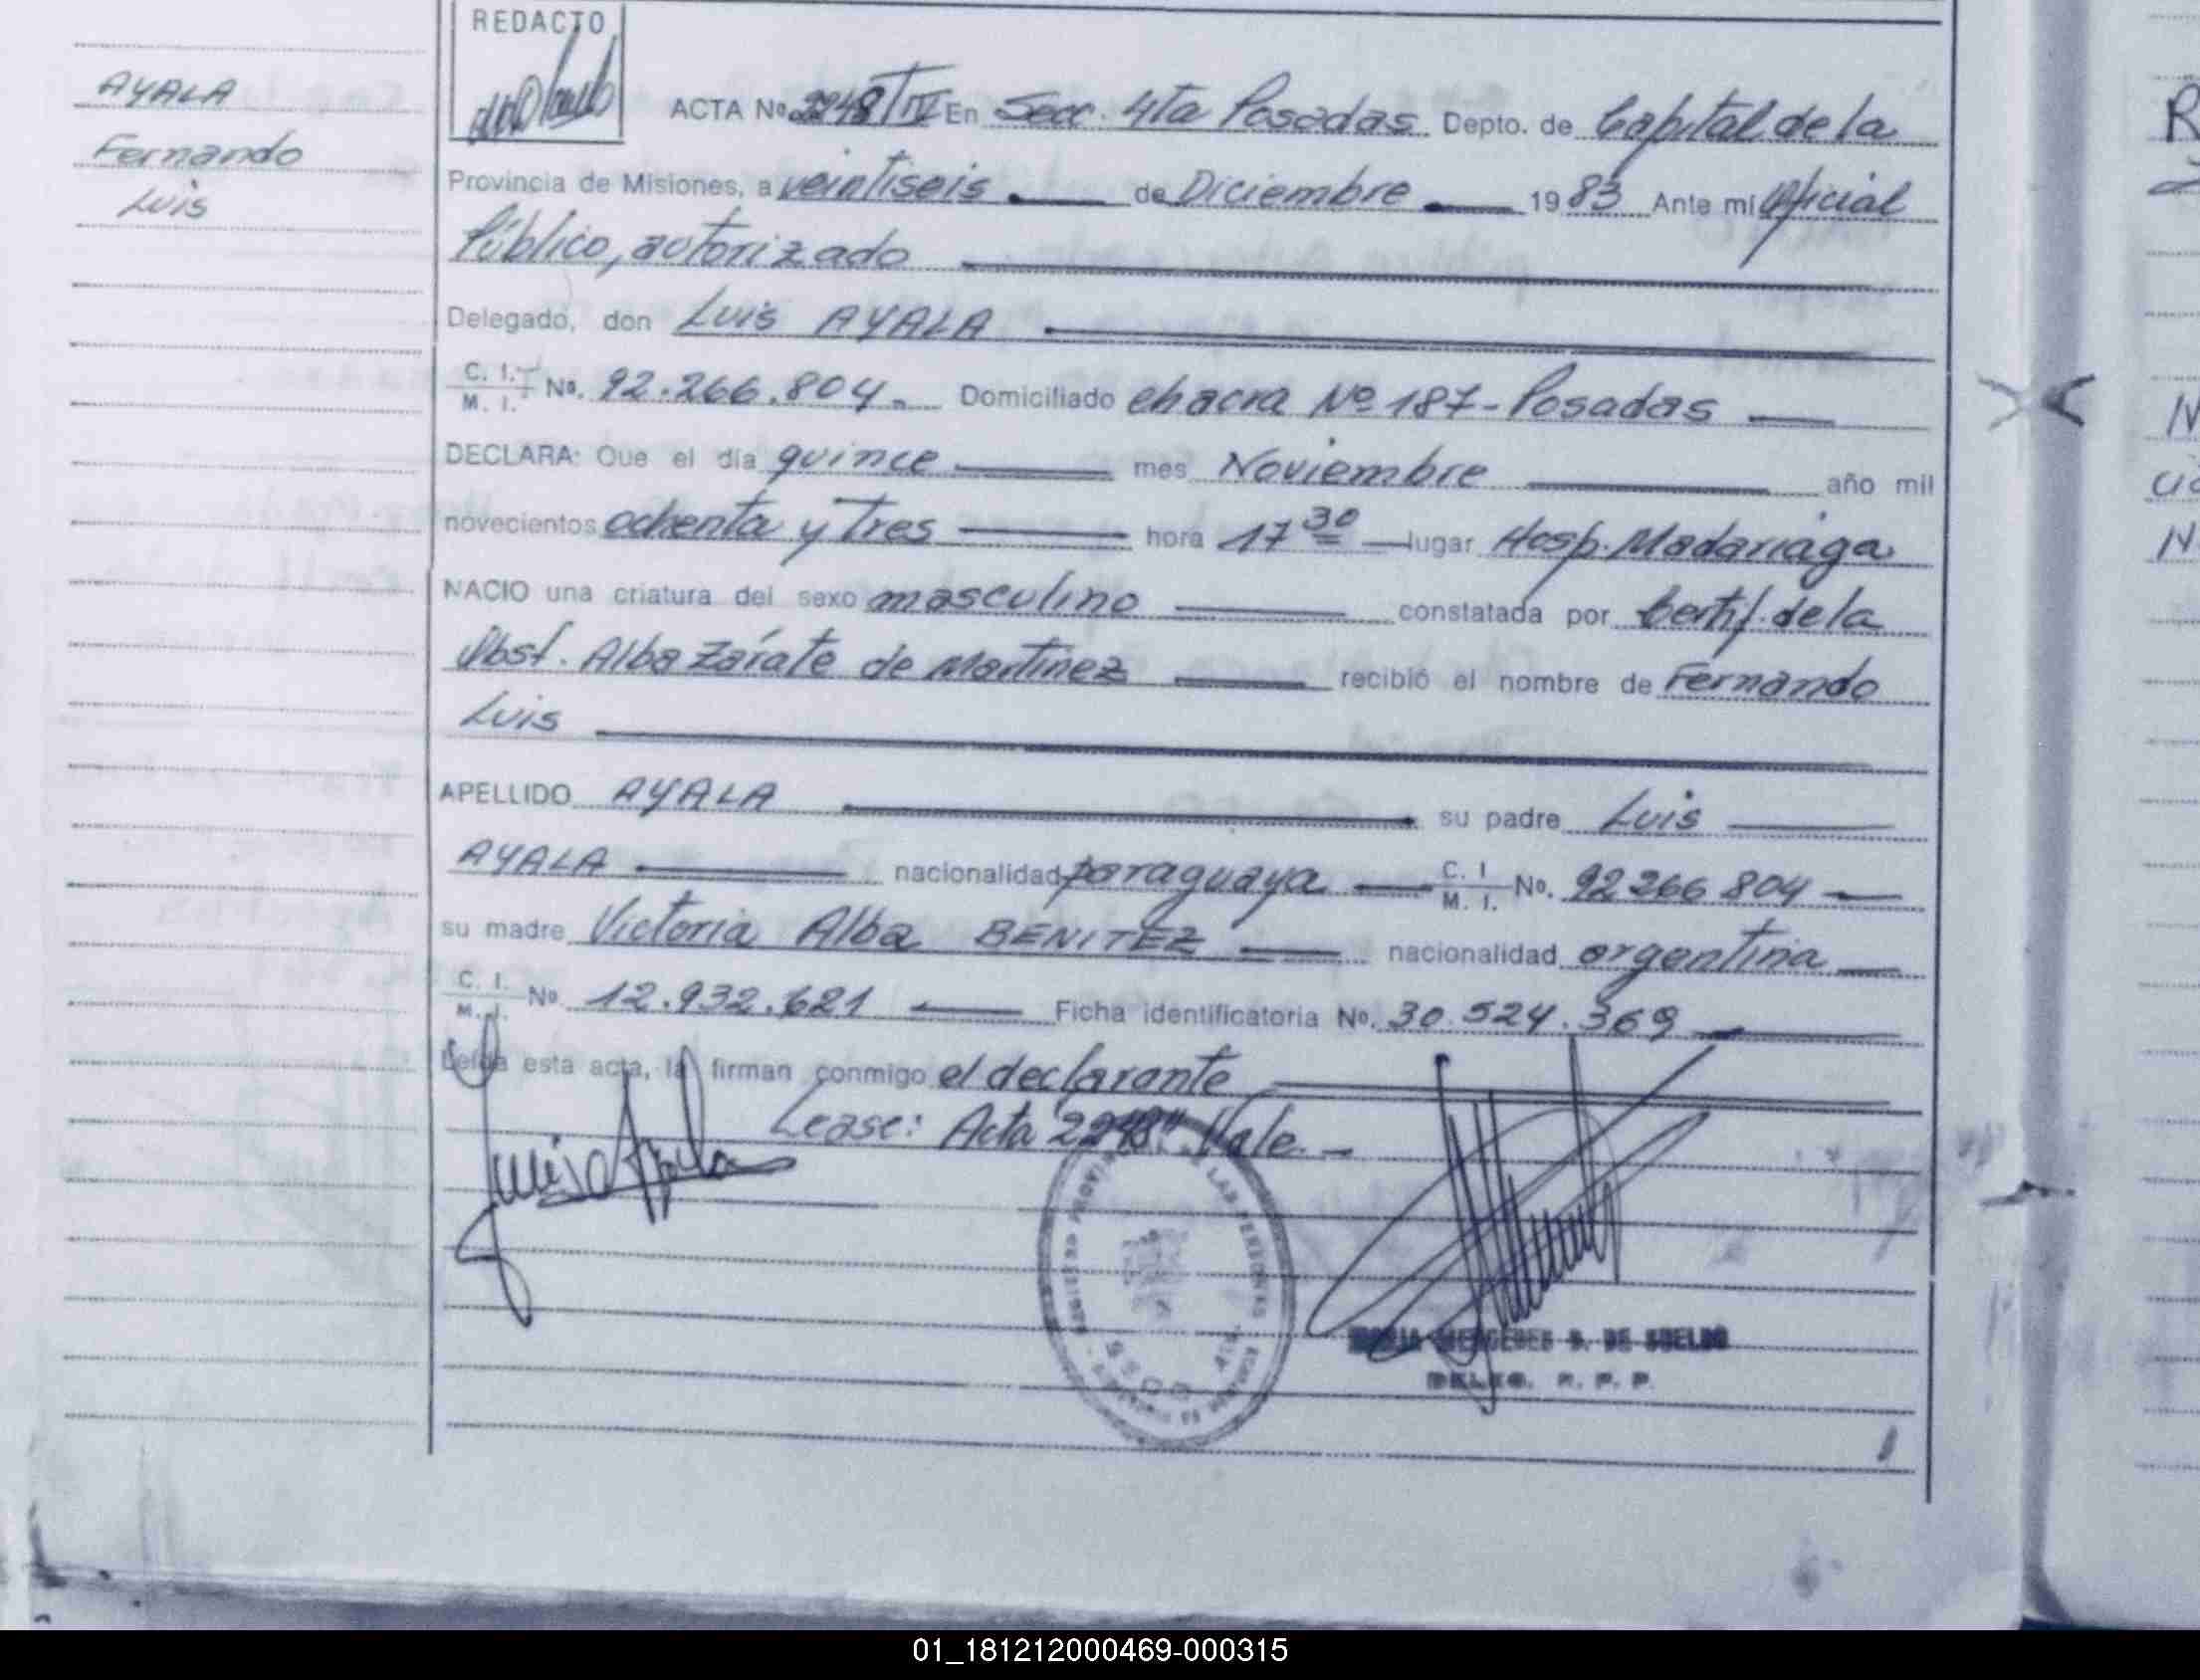 AYALA
Fernando
Luis
REDACTO
ACTA Nº 2248/IV En Secc. 4ta Posadas Depto. de Capital de la
Provincia de Misiones, a veintiseis de Diciembre 1983 Ante mi Oficial
Público, autorizado
Delegado, don Luis AYALA
C. I. M. I. Nº. 92.266.804. Domiciliado chacra Nº 187 - Posadas
DECLARA: Que el día quince mes Noviembre año mil
novecientos ochenta y tres hora 17 30 lugar Hosp. Madariaga
NACIO una criatura del sexo masculino constatada por Certif. de la
Obst. Alba Zárate de Martínez recibió el nombre de Fernando
Luis
APELLIDO AYALA su padre Luis
AYALA nacionalidad paraguaya C. I M. I. Nº. 92266804
su madre Victoria Alba BENITEZ nacionalidad argentina
C. I. M. I. Nº 12.932.621 Ficha identificatoria Nº. 30.524.369
Leída esta acta, la firman conmigo el declarante
Lease: Acta "2248" Vale.
Luis Ayala
MERCEDES S. DE SUELDO
DELEG. R. P. P.
01_181212000469-000315